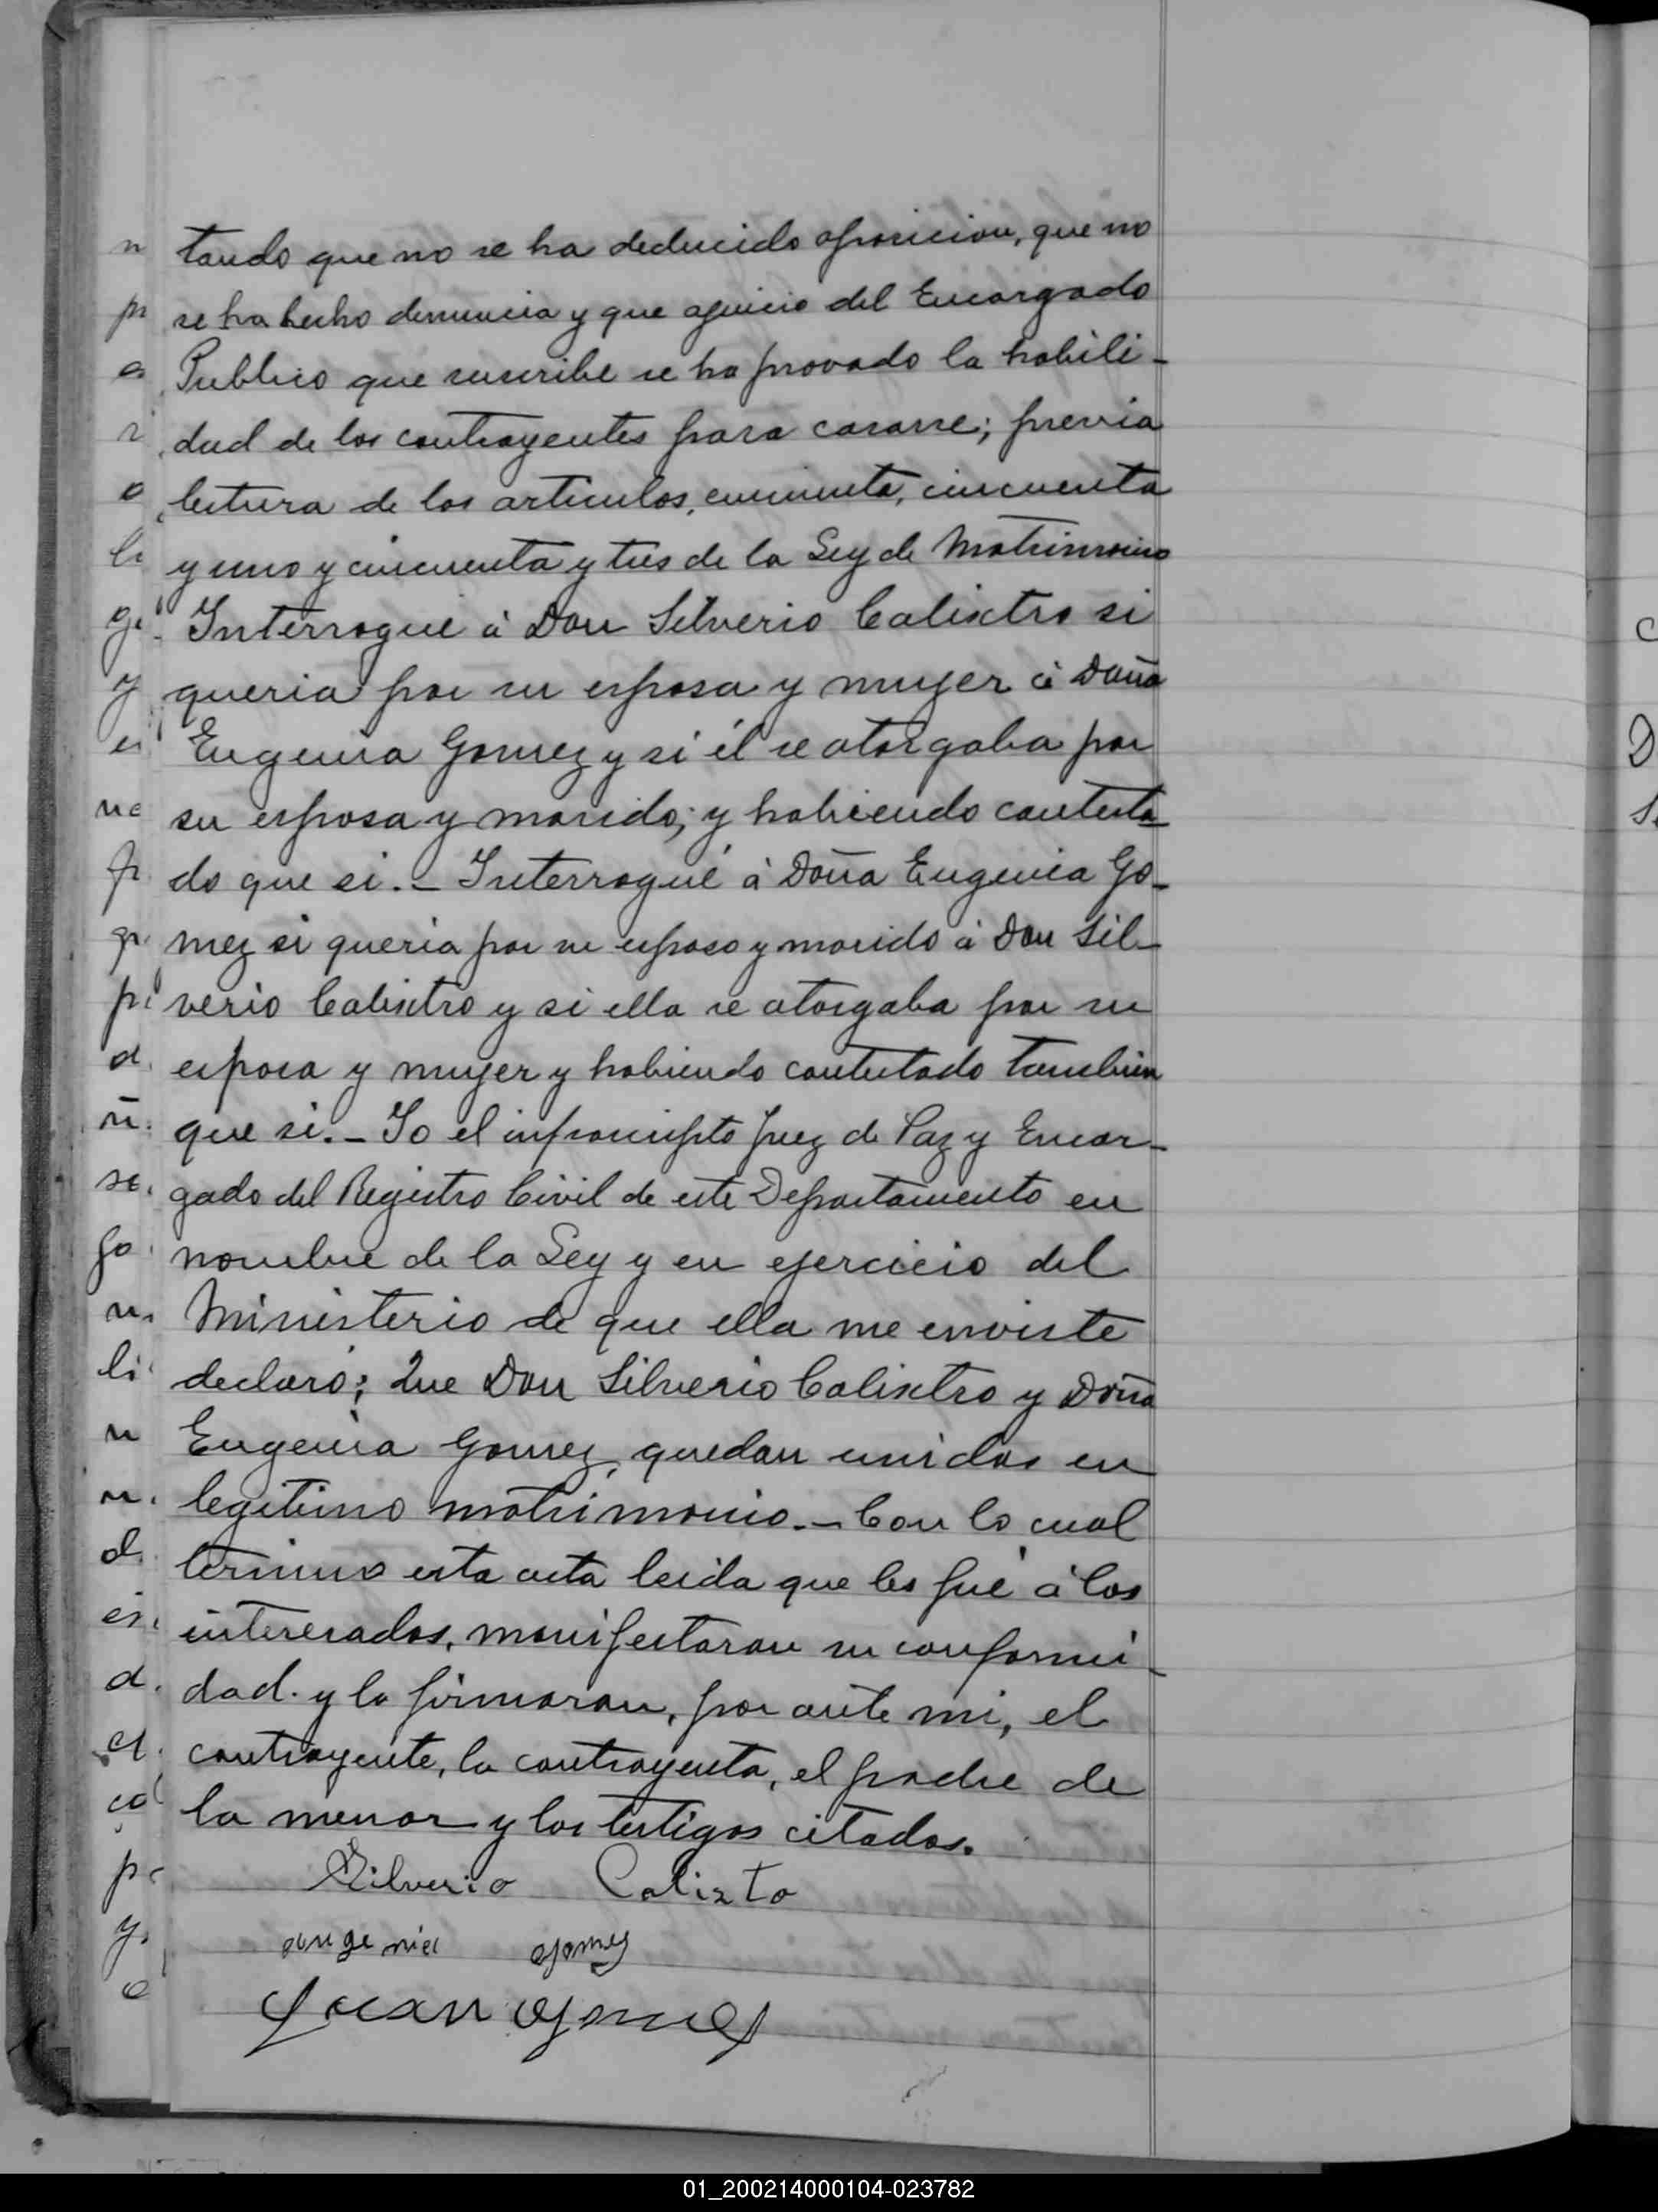 tando que no se ha deducido oposicion, que no
se ha hecho denuncia y que ajuicio del Encargado
Publico que suscribe se ha provado la habili-
dad de los contrayentes para casarse; previa
lectura de los articulos, cincuenta
y uno y cincuenta y tres de la Ley de Matrimonio
Interrogué á Don Silverio Calixtro si
queria por su esposa y mujer á Doña
Eugenia Gomez y si él se otorgaba por
su esposa y marido; y habiendo contesta
do que si. - Interrogué á Doña Eugenia Go-
mez si queria por su esposo y marido á Don Sil-
verio Calixtro y si ella se otorgaba por su
esposa y mujer y habiendo contestado tambien
que si. - Yo el infrascripto Juez de Paz y Encar-
gado del Registro Civil de este Departamento en
nombre de la Ley y en ejercicio del
Ministerio de que ella me enviste
declaro; Que Don Silverio Calixtro y Doña
Eugenia Gomez, quedan unidos en
legitimo matrimonio. - Con lo cual
termino esta acta leida que les fué á los
interesados, manifestaron su conformi-
dad. y la firmaron, por ante mi, el
contrayente, la contrayenta, el padre de
la menor y los testigos citados.
Silverio Calizto
eugenia gomez
Juan gomez
01_200214000104-023782